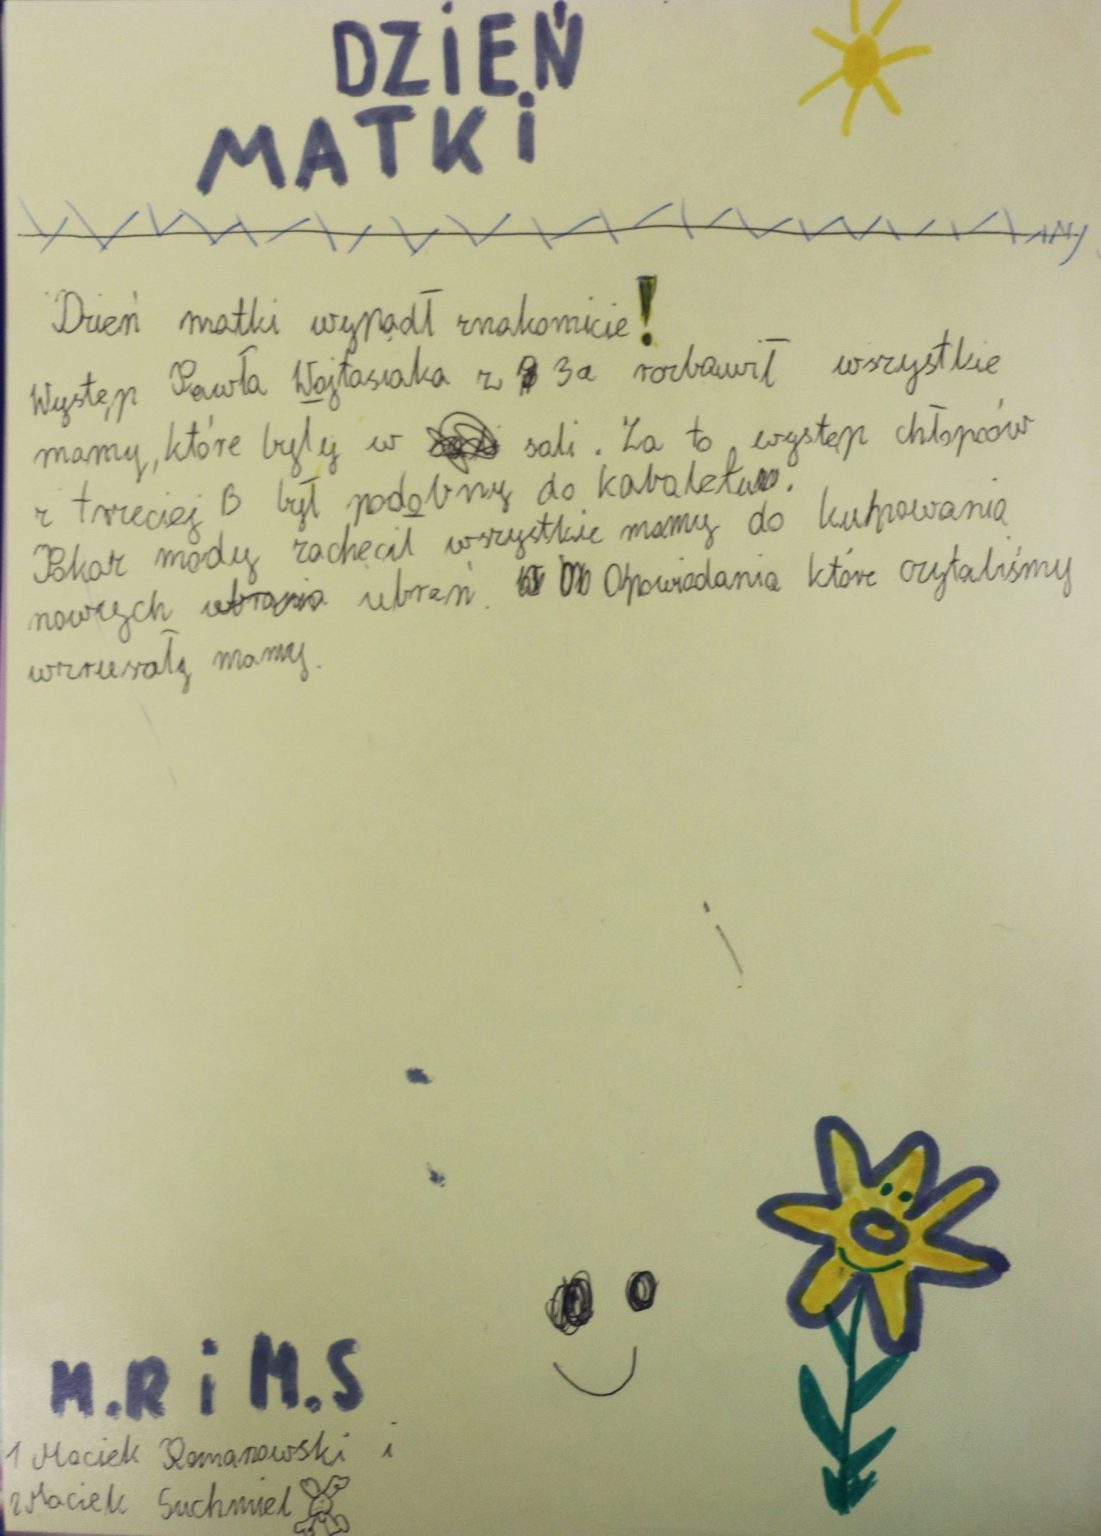 DZiEŃ
MATKi
Dzień matki wypadł znakomicie!
Występ Pawła Wojtasiaka z 3a rozbawił wszystkie
mamy, które były w sali. Za to występ chłopców
z trzeciej B był podobny do kabaletu.
Pokaz mody zachęcił wszystkie mamy do kupowania
nowych ubrań. Opowiadania które czytaliśmy
wzruszały mamy.
M.R i M.S
1 Maciek Romanowski i
2 Maciek Suchmiel